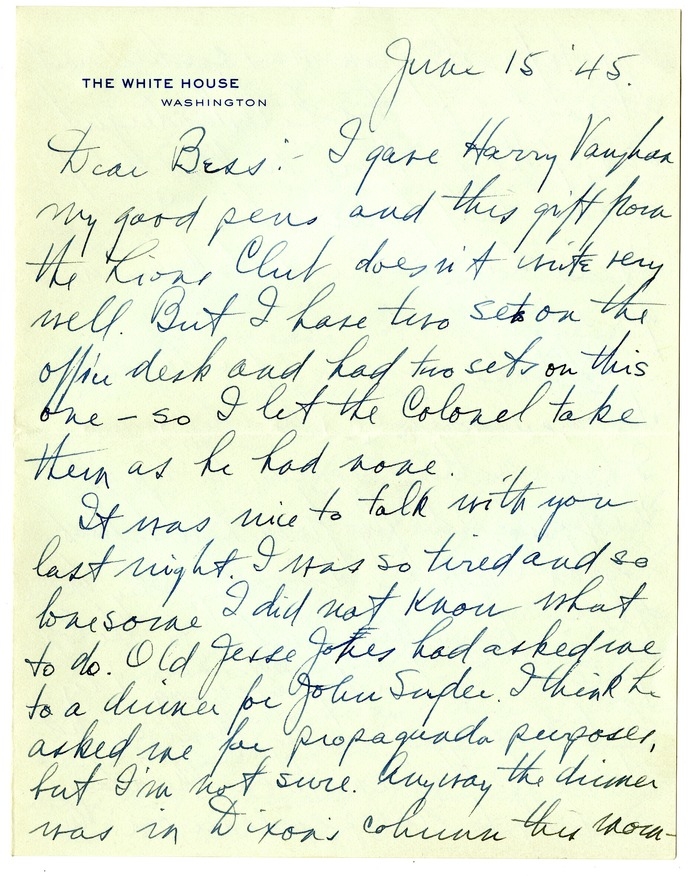 June 15 '45.
THE WHITE HOUSE
WASHINGTON
Dear Bess:- I gave Harry Vaughan
my good pens and this gift from
the Lions Club doesn't write very
well. But I have two sets on the
office desk and had two sets on this
one - so I let the Colonel take
them as he had none.
It was nice to talk with you
last night. I was so tired and so
lonesome I did not know what
to do. Old Jesse Jones had asked me
to a dinner for John Snyder. I think he
asked me for propaganda purposes,
but I'm not sure. Anyway the dinner
was in Dixon's column this morn-